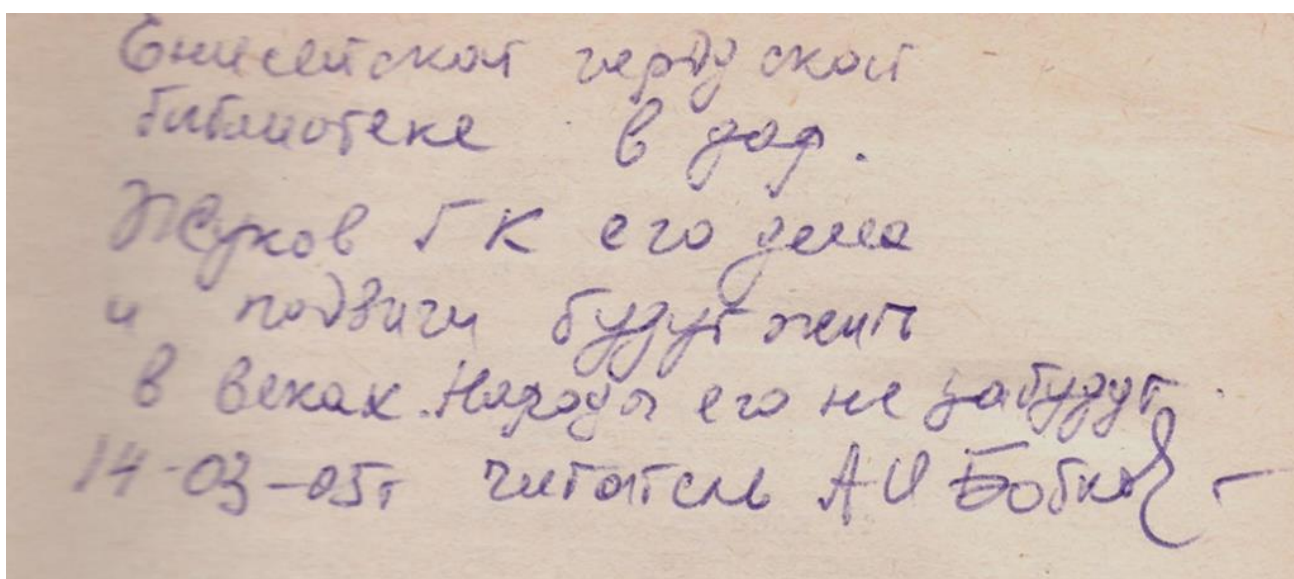 Енисейской городской
библиотеке в дар.
Жуков ГК его дела
и подвиги будут жить
в веках. Народы его не забудут.
14-03-05г читатель А И